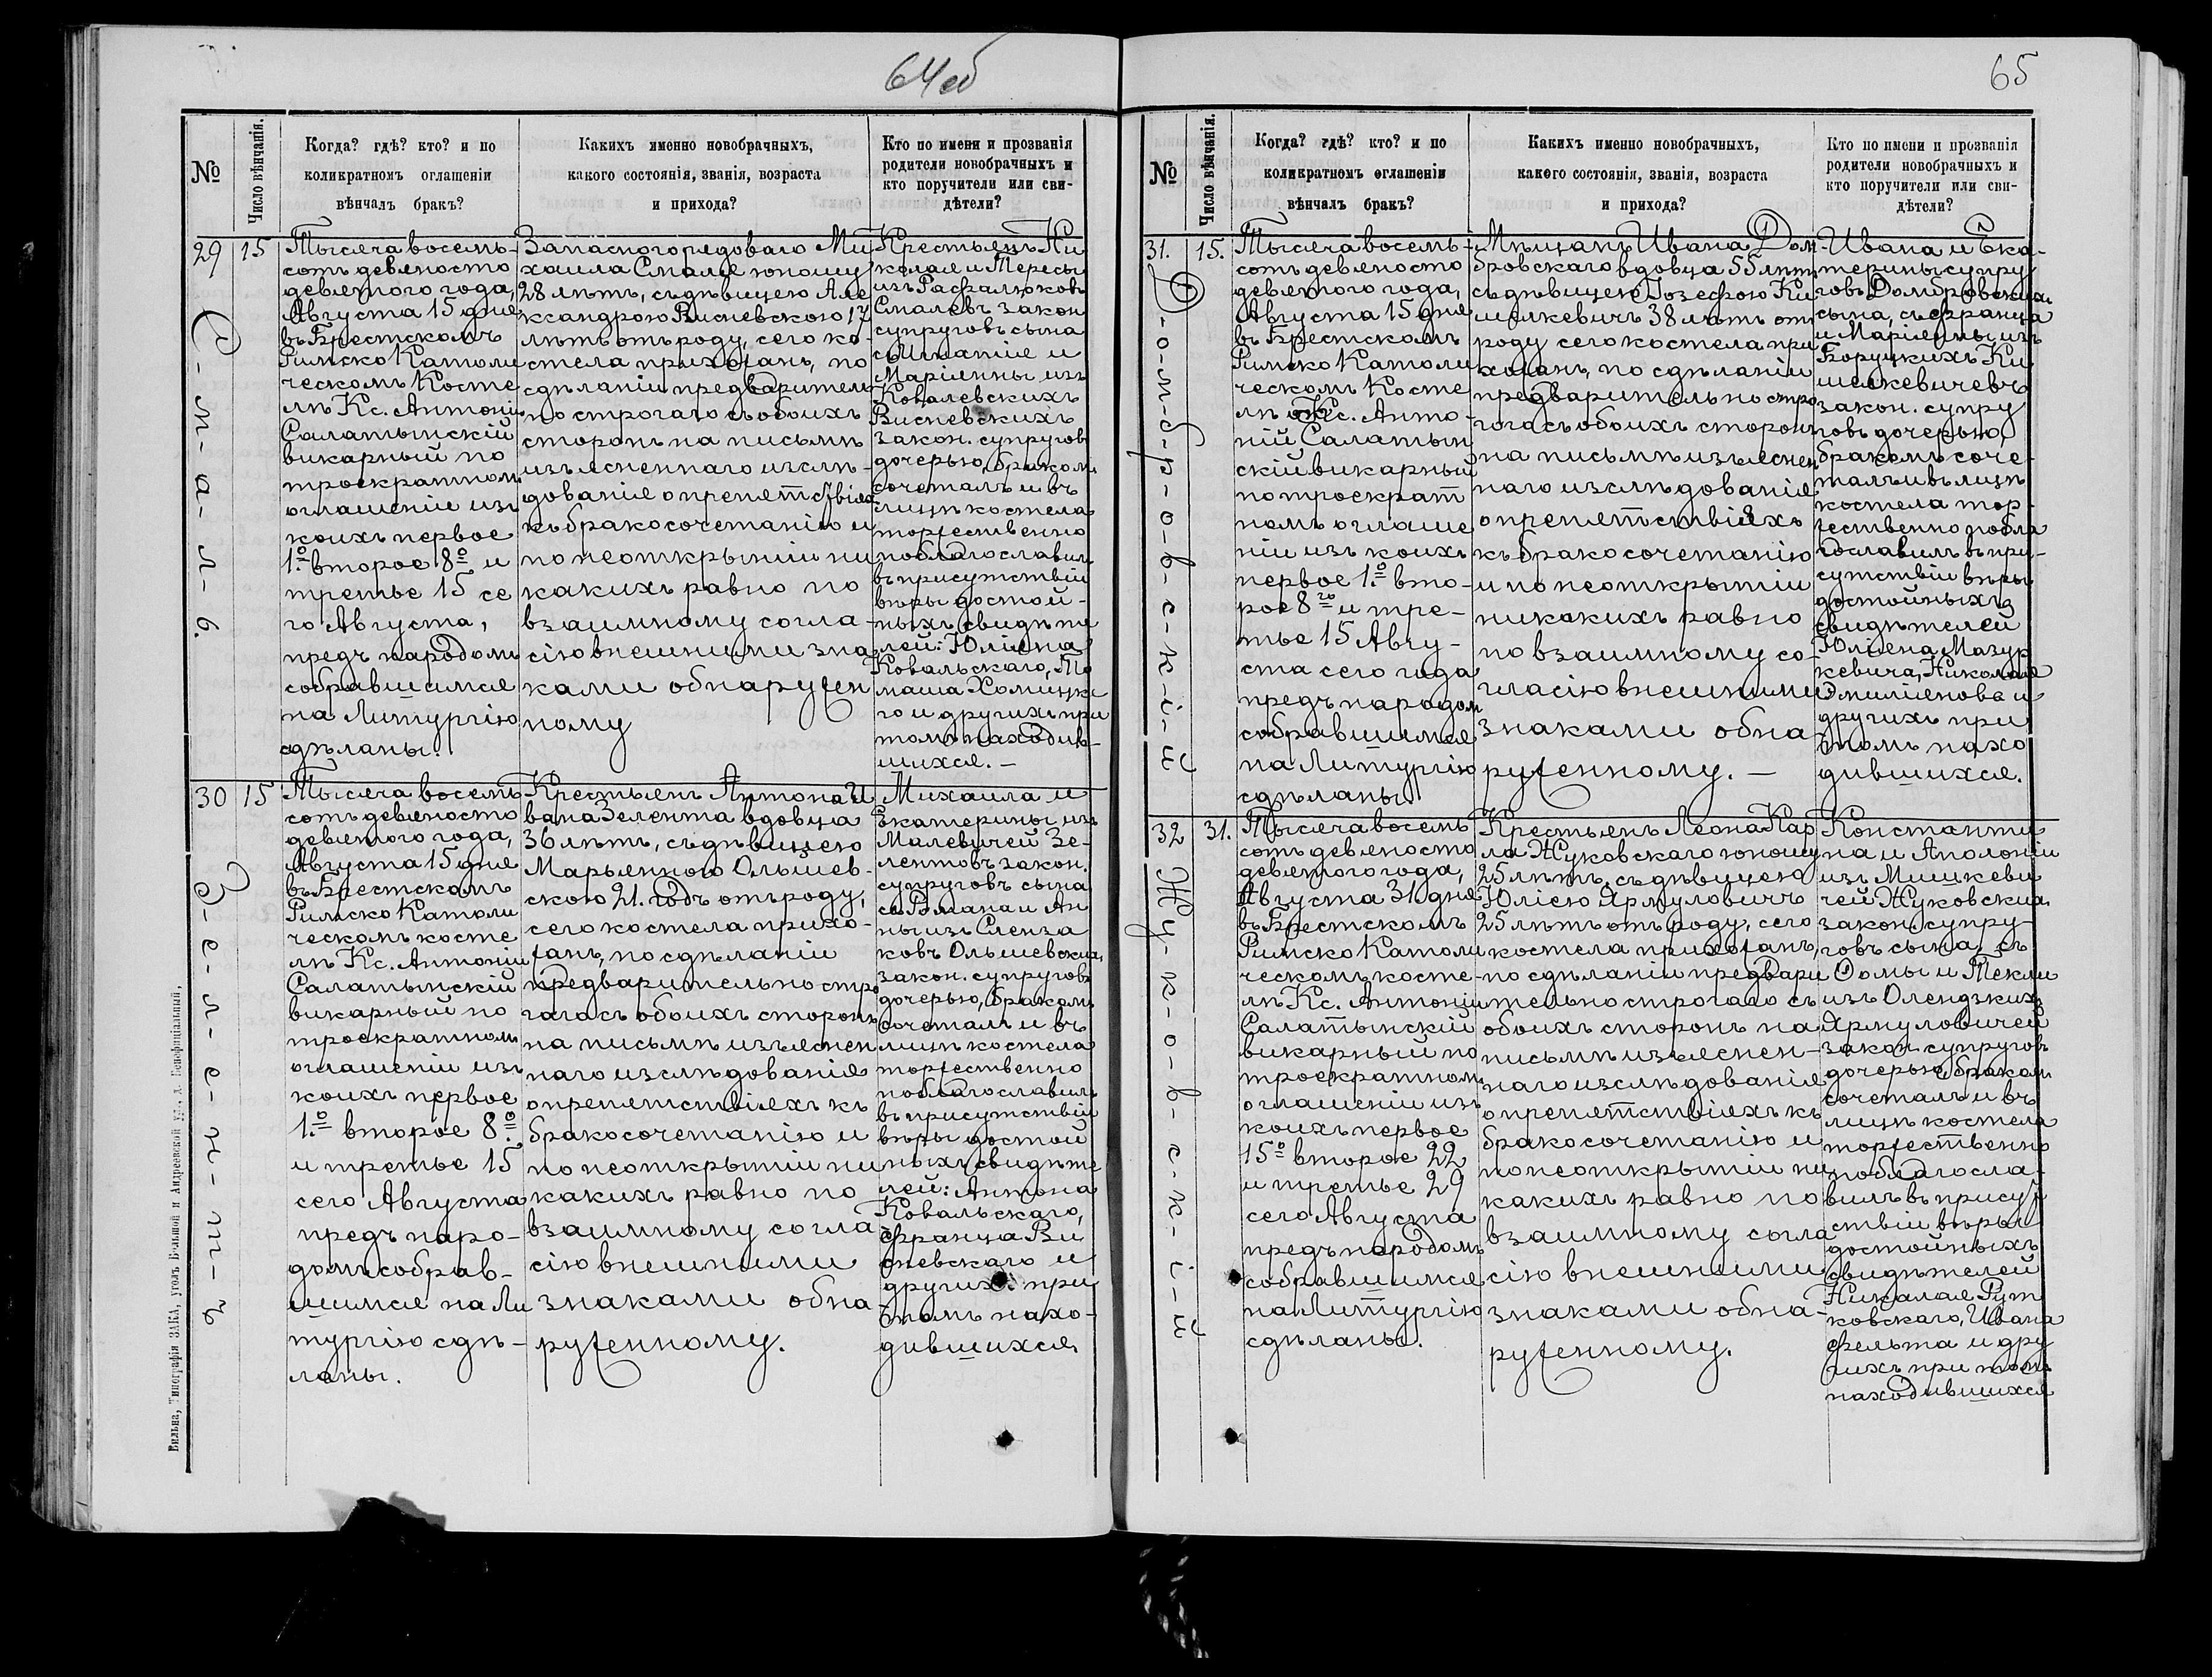 64об
№
Число вѣнчанія.
Когда? гдѣ? кто? и по
коликратномъ оглашеніи
вѣнчалъ бракъ?
Какихъ именно новобрачныхъ,
какого состоянія, званія, возраста
и прихода?
Кто по имени и прозванія
родители новобрачныхъ и
кто поручители или сви-
дѣтели?
29
15
С-м-а-л-ь.
Тысяча восемь-
сотъ девяносто
девятого года,
Августа 15 дня
въ Брестскомъ
Римско Католи
ческомъ Косте
лѣ Кс. Антоній
Салатынскій
викарный по
троекратномъ
оглашеніи изъ
коихъ первое
1.º второе 8º и
третье 15 се
го Августа,
предъ народомъ
собравшимся
на Литургію
сдѣланы.
Запасного рядоваго Ми
хаила Смаля юношу
28 лѣтъ, съ дѣвицею Але
ксандрою Висневскою 17
лѣтъ отъ роду, сего ко-
стела прихожанъ, по
сдѣланіи предваритель
но строгаго съ обоихъ
сторонъ на письмѣ
изъясненнаго изслѣ-
дованія о препятствіяхъ
къ бракосочетанію и
по неоткрытіи ни
какихъ равно по
взаимному согла-
сію внешними зна
ками обнаружен
ному
Крестьянъ Ни
колая и Тересы
изъ Рафалюковъ
Смалевъ закон
супруговъ сына
съ Игнатія и
Маріянны изъ
Ковалевскихъ
Висневскихъ
закон. супруговъ
дочерью, бракомъ
сочеталъ и въ
лицѣ костела
торжественно
поблагославилъ
въ присутствіи
вѣры достой-
ныхъ свидѣте
лей: Юліяна
Ковальскаго, То
маша Хомицка
го и другихъ при
томъ находив-
шихся. –
30
15
З-е-л-е-н-т-ъ
Тысяча восемь
сотъ девяносто
девятого года,
Августа 15 дня
въ Брестскомъ
Римско Католи
ческомъ косте
лѣ Кс. Антоній
Салатынскій
викарный по
троекратномъ
оглашеніи изъ
коихъ первое
1.º второе 8.º
и третье 15
сего Августа
предъ наро-
домъ собрав-
шимся на Ли
тургію сдѣ-
ланы.
Крестьянъ Антона И
вана Зелента вдовца
36 лѣтъ, съ дѣвицею
Марьянною Ольшев-
скою 21. годъ отъ роду,
сего костела прихо-
жанъ, по сдѣланіи
предварительно стро
гаго съ обоихъ сторонъ
на письмѣ изъяснен
наго изслѣдованія
о препятствіяхъ къ
бракосочетанію и
по неоткрытіи ни
какихъ равно по
взаимному согла
сію внешними
знаками обна-
руженному.
Михаила и
Екатерины изъ
Малевичей Зе-
лентовъ закон.
супруговъ сына
съ Романа и Ан
ны изъ Сленза
ковъ Ольшевскихъ
закон. супруговъ
дочерью, бракомъ
сочеталъ и въ
лицѣ костела
торжественно
поблагославилъ
въ присутствіи
вѣры достой
ныхъ свидѣте
лей: Антона
Ковальскаго,
Франца Ви
сневскаго и
другихъ при
томъ нахо-
дившихся.
Вильна, Типографія ЗАКА, уголъ Большой и Андреевской
65
№
Число вѣнчанія.
Когда? гдѣ? кто? и по
коликратномъ оглашеніи
вѣнчалъ бракъ?
Какихъ именно новобрачныхъ,
какого состоянія, званія, возраста
и прихода?
Кто по имени и прозванія
родители новобрачныхъ и
кто поручители или сви-
дѣтели?
31.
15.
Д-о-м-б-р-о-в-с-к-і-й
Тысяча восемь-
сотъ девяносто
девятого года,
Августа 15 дня
въ Брестскомъ
Римско Католи
ческомъ Косте
лѣ Кс. Анто-
ній Салатын
скій викарный
по троекрат
номъ оглаше
ніи изъ коихъ
первое 1.º вто-
рое 8го и тре-
тье 15 Авгу-
ста сего года
предъ народом
собравшимся
на Литургію
сдѣланы
Мѣщанъ Ивана Дом-
бровскаго вдовца 55 лѣтъ
съ дѣвицею Іозефою Ки
шелкевичъ 38 лѣтъ отъ
роду сего костела при
хожанъ, по сдѣланіи
предварительно стро
гога съ обоихъ сторонъ
на письмѣ изъяснен
наго изслѣдованія
о препятствіяхъ
къ бракосочетанію
и по неоткрытіи
никакихъ равно
по взаимному со-
гласію внешними
знаками обна-
руженному. –
Ивана и Ека-
терины супру
говъ Домбровскихъ
сына, съ Франца
и Маріянны изъ
Боруцкихъ Ки
шелкевичевъ
закон. супру
говъ дочерью,
бракомъ соче-
талъ и въ лицѣ
костела тор-
жественно побла
гославилъ въ при-
сутствіи вѣры
достойныхъ
свидѣтелей
Юліяна Мазур
кевича, Николая
Эмиліянова и
другихъ при
томъ нахо
дившихся.
32
31.
Ж-у-к-о-в-с-к-і-й
Тысяча восемь
сотъ девяносто
девятого года,
Августа 31 дня
въ Брестскомъ
Римско Католи
ческомъ косте-
лѣ Кс. Антоній
Салатынскій
викарный по
троекратном
оглашеніи изъ
коихъ первое
15º второе 22
и третье 29
сего Августа
предъ народомъ
собравшимся
на Литургію
сдѣланы.
Крестьянъ Леона Кар
ла Жуковскаго юношу
25 лѣтъ, съ дѣвицею
Юліею Ярмуловичъ
25 лѣтъ отъ роду, сего
костела прихожанъ,
по сдѣланіи предвари
тельно строгаго съ
обоихъ сторонъ на
письмѣ изъяснен-
наго изслѣдованія
о препятствіяхъ къ
бракосочетанію и
по неоткрытіи ни
какихъ равно по
взаимному согла
сію внешними
знаками обна-
руженному.
Константи
на и Аполоніи
изъ Мишкеви
чей Жуковскихъ
закон. супру-
говъ сына, съ
Ѳомы и Текли
изъ Олендзкихъ
Ярмуловичей
закон. супруговъ
дочерью, браком
сочеталъ и въ
лицѣ костела
торжественно
поблагосла-
вилъ въ присут
ствіи вѣры
достойныхъ
свидѣтелей
Николая Рут
ковскаго, Ивана
Фельта и дру
гихъ при томъ
находившихся